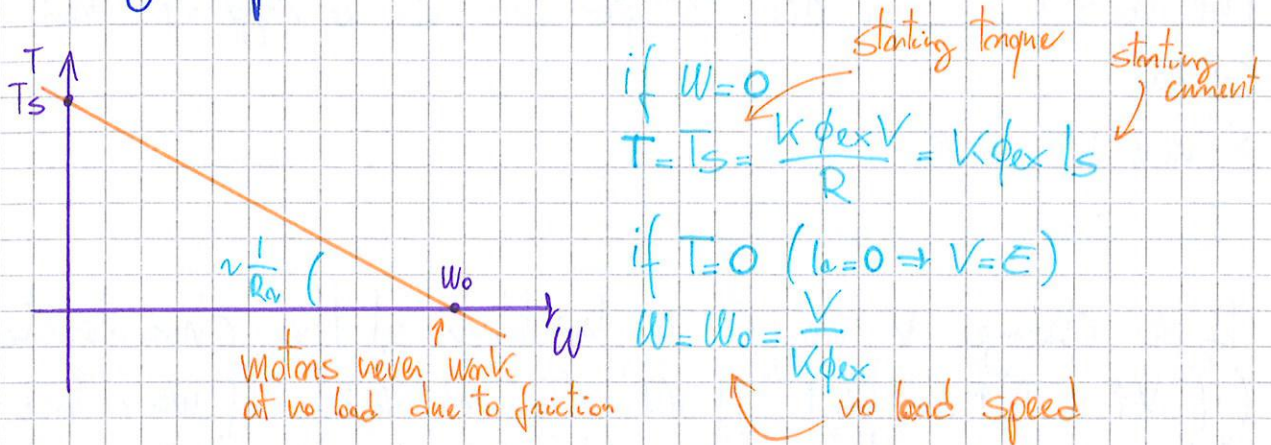 T
Ts
~ 1/Ra
W0
W
motors never work
at no load due to friction
starting torque
starting
current
if W=0
T=Ts= KϕexV/R = Kϕex Is
if T=0 (Ia=0 ⇒ V=E)
W=W0= V/Kϕex
no load speed